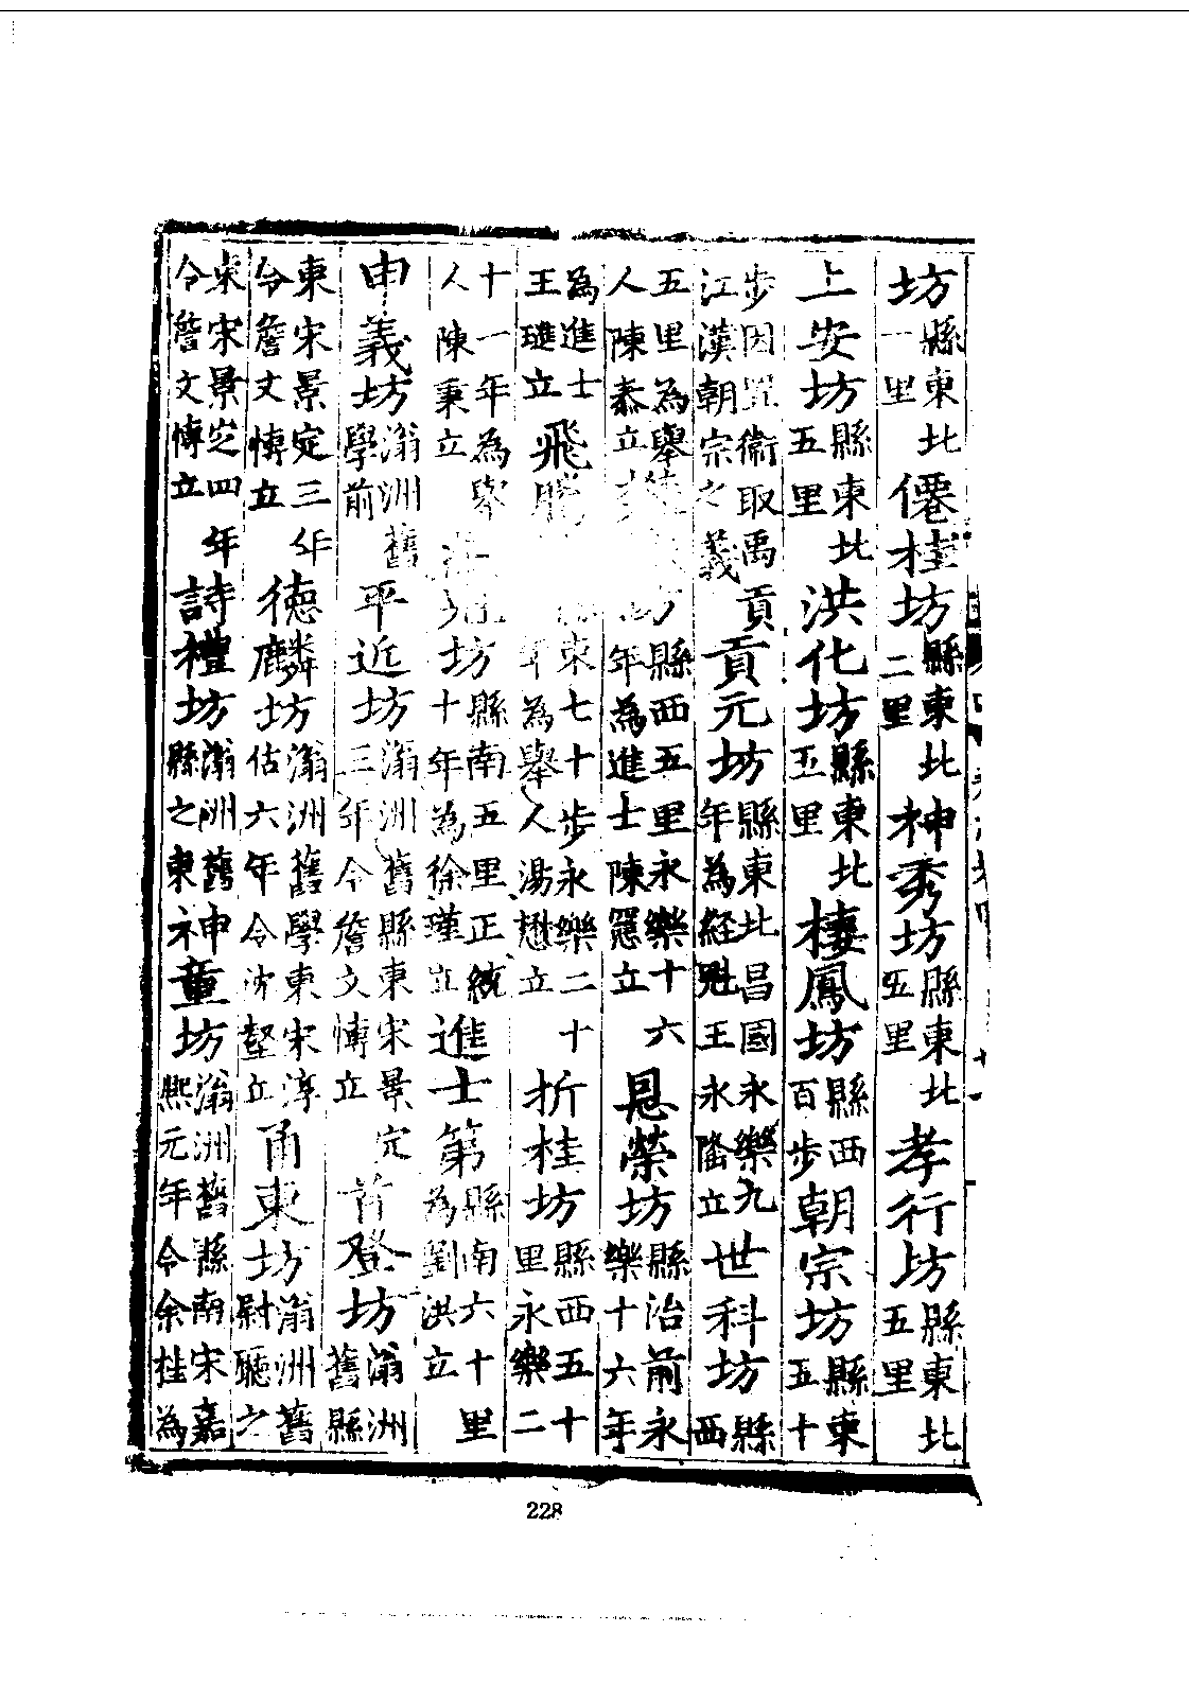 坊縣東北一里僊桂坊縣東北二里神秀坊縣東北五里孝行坊縣東北五里
上安坊縣東北五里洪化坊縣東北五里棲鳳坊縣西百步朝宗坊縣東五十
步因置衛取禹貢江漢朝宗之義貢元坊縣東北昌國永樂九年為經魁王永隆立世科坊縣西
五里為舉人陳泰立坊縣西五里永樂十六年為進士陳寬立恩榮坊縣治前永樂十六年
為進士王璡立飛騰東七十步永樂二十年為舉人湯懋立折桂坊縣西五十里永樂二
十一年為舉人陳秉立坊縣南五里正統十年為徐瑾立進士第縣南六十里為劉洪立
申義坊滃洲舊學前平近坊滃洲舊縣東宋景定三年令詹文慱立首登坊滃洲舊縣
東宋景定三年令詹文慱立德麟坊滃洲舊學東宋淳祐六年令沈壑立甬東坊滃洲舊尉廳之
東宋景定四年令詹文慱立詩禮坊滃洲舊縣之東神童坊滃洲舊縣南宋嘉熙元年令余桂為
228